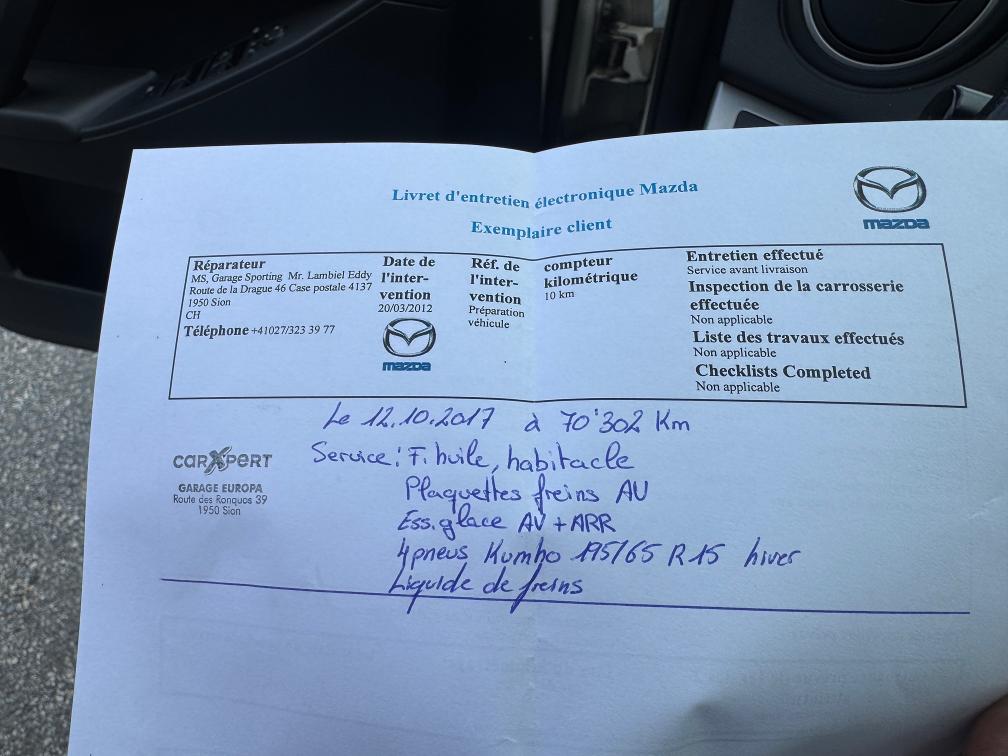 Livret d'entretien électronique Mazda
Exemplaire client
mazda
Réparateur
MS, Garage Sporting Mr. Lambiel Eddy
Route de la Drague 46 Case postale 4137
1950 Sion
CH
Téléphone +41027/323 39 77
Date de
l'inter-
vention
20/03/2012
mazda
Réf. de
l'inter-
vention
Préparation
véhicule
compteur
kilométrique
10 km
Entretien effectué
Service avant livraison
Inspection de la carrosserie
effectuée
Non applicable
Liste des travaux effectués
Non applicable
Checklists Completed
Non applicable
Le 12.10.2017 à 70'302 Km
carXpert
GARAGE EUROPA
Route des Ronquos 39
1950 Sion
Service: F. huile, habitacle
Plaquettes freins AV
Ess. glace AV + ARR
4 pneus Kumho 195/65 R15 hiver
Liquide de freins